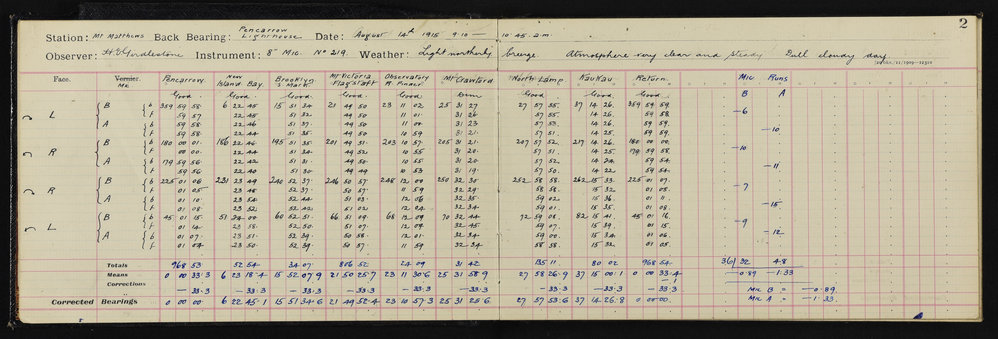 2
Station: Mt Matthews Back Bearing: Pencarrow Lighthouse Date: August 14th 1915 9.10 — 10.45 a.m.
Observer: H.E. Girdlestone Instrument: 8" Mic. No 219. Weather: Light northerly breeze. Atmosphere very clear and steady Dull cloudy day.
Face. Vernier. Mic Pencarrow. New Island Bay. Brooklyn S. Mark. Mt Victoria Flagstaff Observatory Mt Crawford. North Lamp. Kau Kau. Return. Mic Runs
Good. Good. Good. Good. Good. Dim Good. Good. Good. B A
L B b 359 59 58. 6 22 45 15 51 34 21 49 50 23 11 02 25 31 27 27 57 55. 37 14 26. 359 59 59.
f 59 57 22 45 51 32. 49 50 11 01 31 26 57 55. 14 26. 59 58. —6
A b 59 58. 22 46 51 37. 49 50 11 04 31 23 57 53. 14 26. 59 59.
f 59 58. 22 44 51 35. 49 50 10 59 31 21. 57 51. 14 25. 59 59. —10
R B b 180 00 01. 186 22 46 195 51 35. 201 49 51. 203 10 57. 205 31 21. 207 57 52. 217 14 26. 180 00 00.
f 00 00. 22 44 51 34. 49 52 10 55 31 20. 57 51. 14 25. 179 59 58. —10
A b 179 59 56. 22 42 51 31. 49 50 10 55 31 20. 57 52. 14 24 59 54.
f 59 56 22 40 51 30. 49 49 10 53 31 19. 57 50. 14 22. 59 54. —11
R B b 225 01 08. 231 23 49 240 52 37. 246 50 57. 248 12 00 250 32 30. 252 58 58. 262 15 33. 225 01 07.
f 01 05 23 48 52 37. 50 57. 11 59 32 29. 58 58. 15 32 01 05. —7
A b 01 10 23 54 52 44 51 03. 12 06 32 35. 59 02 15 36 01 11.
f 01 08. 23 52 52 42 51 02 12 04 32 34 59 01. 15 35. 01 08. —15
L B b 45 01 15. 51 24 00 60 52 51. 66 51 09. 68 12 09 70 32 44 72 59 08. 82 15 41. 45 01 16.
f 01 14. 23 58. 52 50 51 07. 12 09 32 45 59 07. 15 39 01 15. —9
A b 01 07. 23 51. 52 39. 50 58. 12 01 32 34. 59 00. 15 34 01 06.
f 01 04. 23 50. 52 39. 50 57. 11 59 32 34 58 58. 15 32 01 05. —12
Totals 968 53. 52 54 34 07. 806 52 24 09 31 42 135 11 80 02 968 54. 32 4.8
Means 0 00 33.3 6 23 18.4 15 52 07.9 21 50 25.7 23 11 30.6 25 31 58.9 27 58 26.9 37 15 00.1 0 00 33.4 —0.89 —1.33
Corrections —33.3 —33.3 —33.3 —33.3 —33.3 —33.3 —33.3 —33.3 —33.3 Mic B = —0.89
Corrected Bearings 0 00 00. 6 22 45.1 15 51 34.6 21 49 52.4 23 10 57.3 25 31 25.6 27 57 53.6 37 14 26.8 0 00 00. Mic A = —1.33.